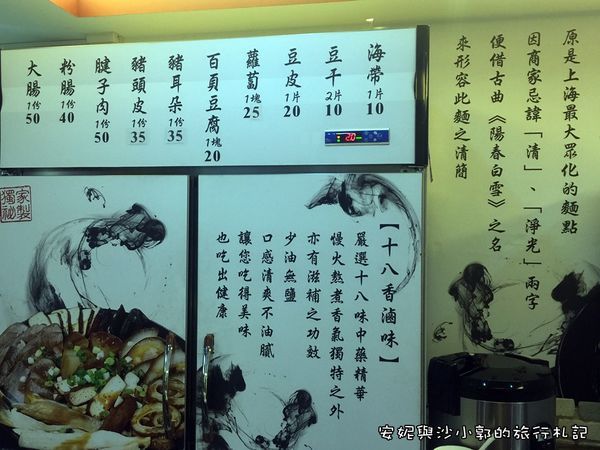 海帶 1片 10
豆干 2片 10
豆皮 1片 20
蘿蔔 1塊 25
百頁豆腐 1塊 20
豬耳朵 1份 35
豬頭皮 1份 35
腱子肉 1份 50
粉腸 1份 40
大腸 1份 50
2.0
原是上海最大眾化的麵點
因商家忌諱「清」、「淨光」兩字
便借古曲《陽春白雪》之名
來形容此麵之清簡
【十八香滷味】
嚴選十八味中藥精華
慢火熬煮香氣獨特之外
亦有滋補之功效
少油無鹽
口感清爽不油膩
讓您吃得美味
也吃出健康
家製
獨祕
安妮與沙小郭的旅行札記